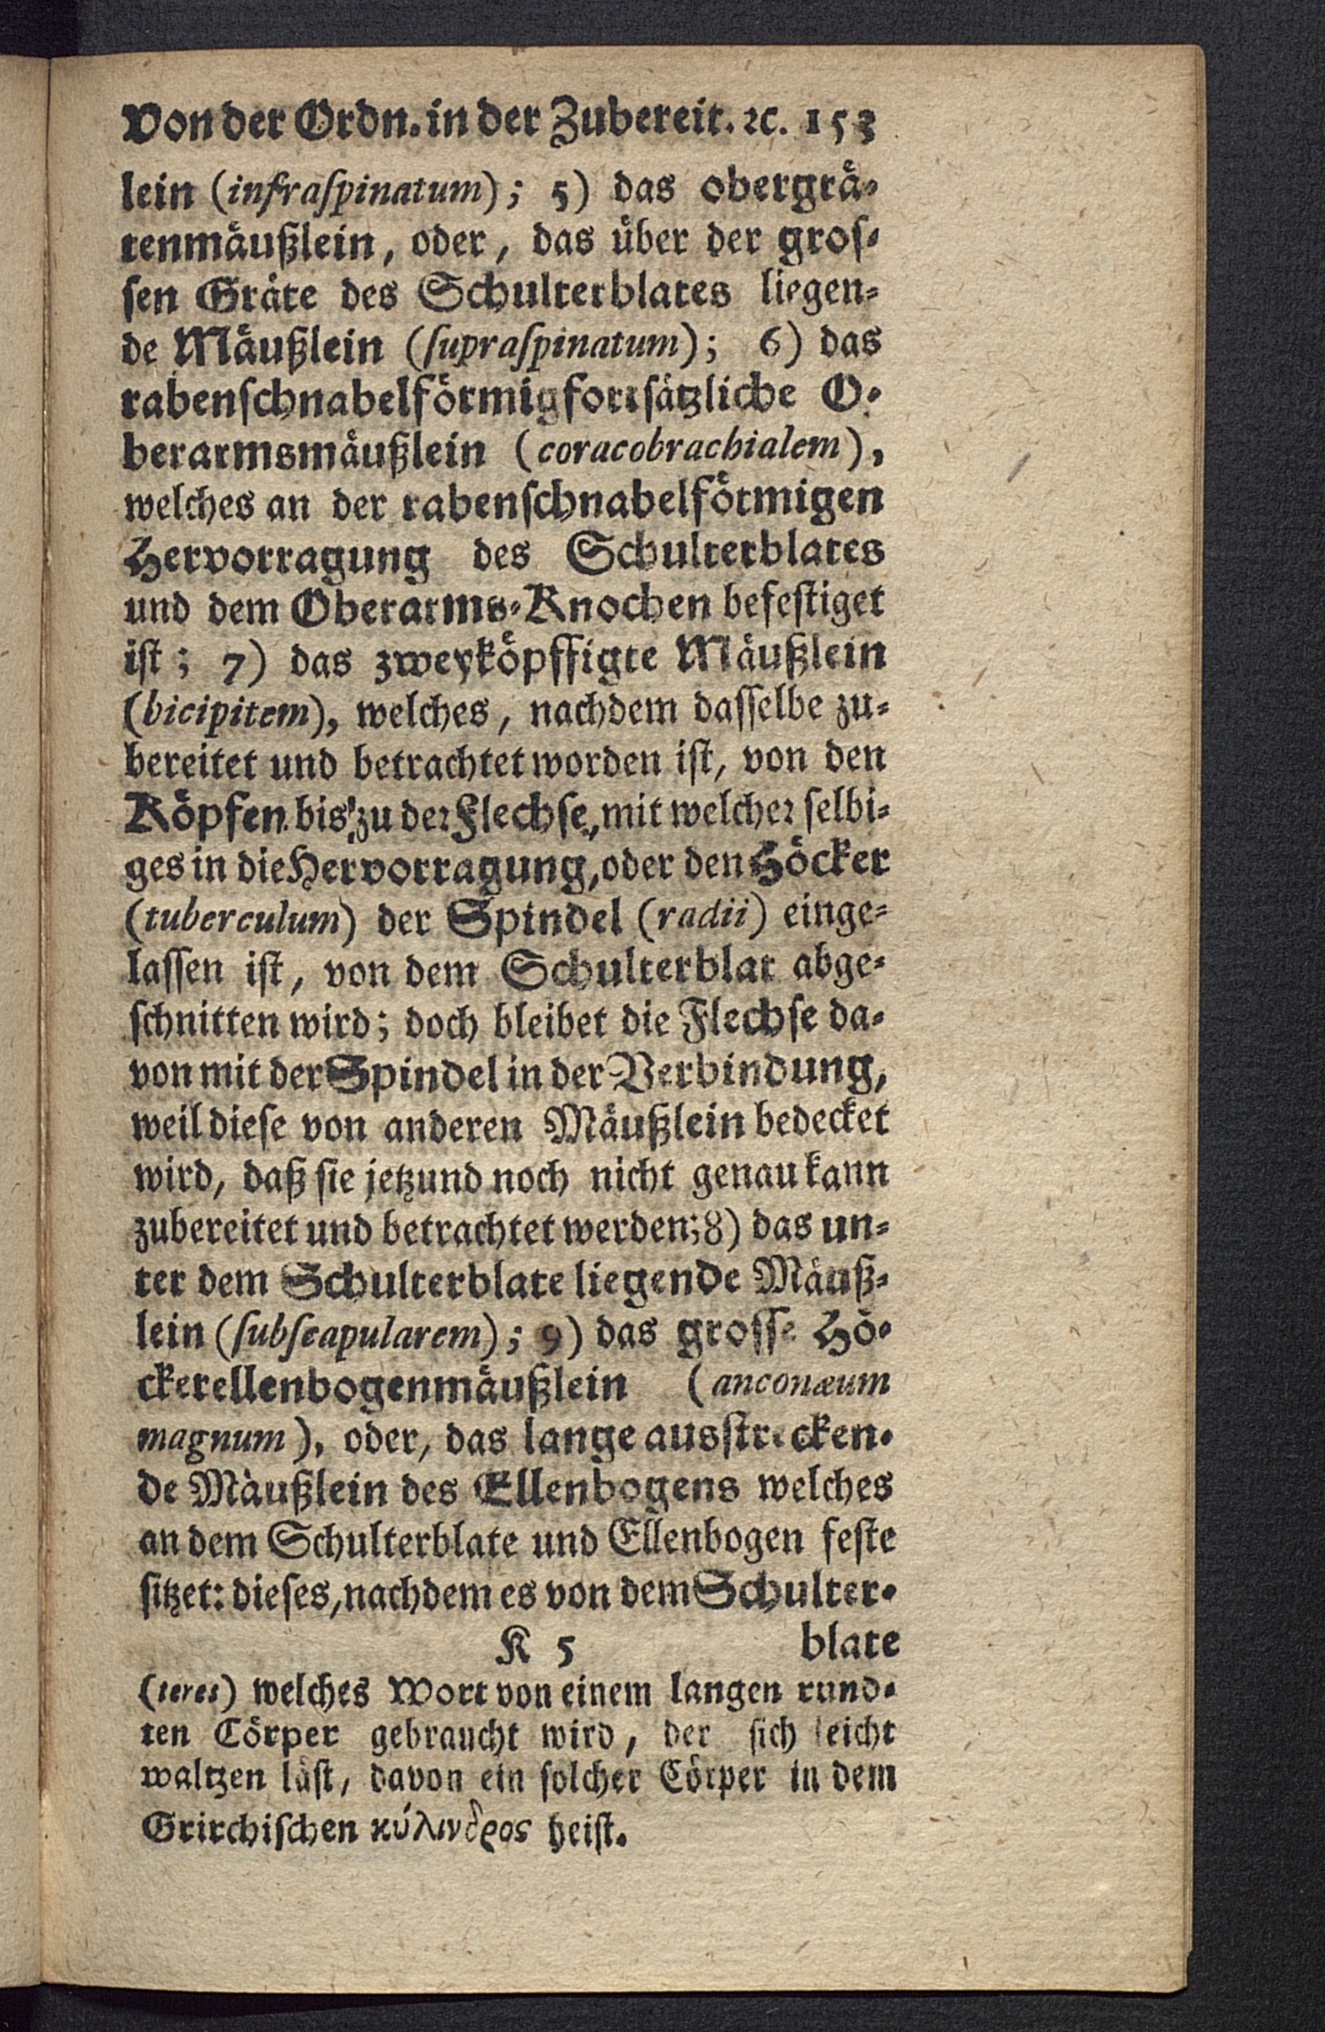 Von der Ordn. in der Zubereit. ꝛc. 153
lein (infraſpinatum); 5) das obergrä-
tenmäußlein, oder, das über der groſ-
ſen Gräte des Schulterblates liegen-
de Mäußlein (ſupraſpinatum); 6) das
rabenſchnabelförmigfortſätzliche O-
berarmsmäußlein (coracobrachialem),
welches an der rabenſchnabelförmigen
Hervorragung des Schulterblates
und dem Oberarms-Knochen befeſtiget
iſt; 7) das zweyköpffigte Mäußlein
(bicipitem), welches, nachdem daſſelbe zu-
bereitet und betrachtet worden iſt, von den
Köpfen bis zu der Flechſe, mit welcher ſelbi-
ges in die Hervorragung, oder den Höcker
(tuberculum) der Spindel (radii) einge-
laſſen iſt, von dem Schulterblat abge-
ſchnitten wird; doch bleibet die Flechſe da-
von mit der Spindel in der Verbindung,
weil dieſe von anderen Mäußlein bedecket
wird, daß ſie jetzund noch nicht genau kann
zubereitet und betrachtet werden; 8) das un-
ter dem Schulterblate liegende Mäuß-
lein (ſubſcapularem); 9) das groſſe Hö-
ckerellenbogenmäußlein (anconæum
magnum), oder, das lange ausſtrecken-
de Mäußlein des Ellenbogens welches
an dem Schulterblate und Ellenbogen feſte
ſitzet: dieſes, nachdem es von dem Schulter-
K 5 blate
(teres) welches Wort von einem langen rund-
ten Cörper gebraucht wird, der ſich leicht
waltzen läſt, davon ein ſolcher Cörper in dem
Grirchiſchen κύλινδρος heiſt.